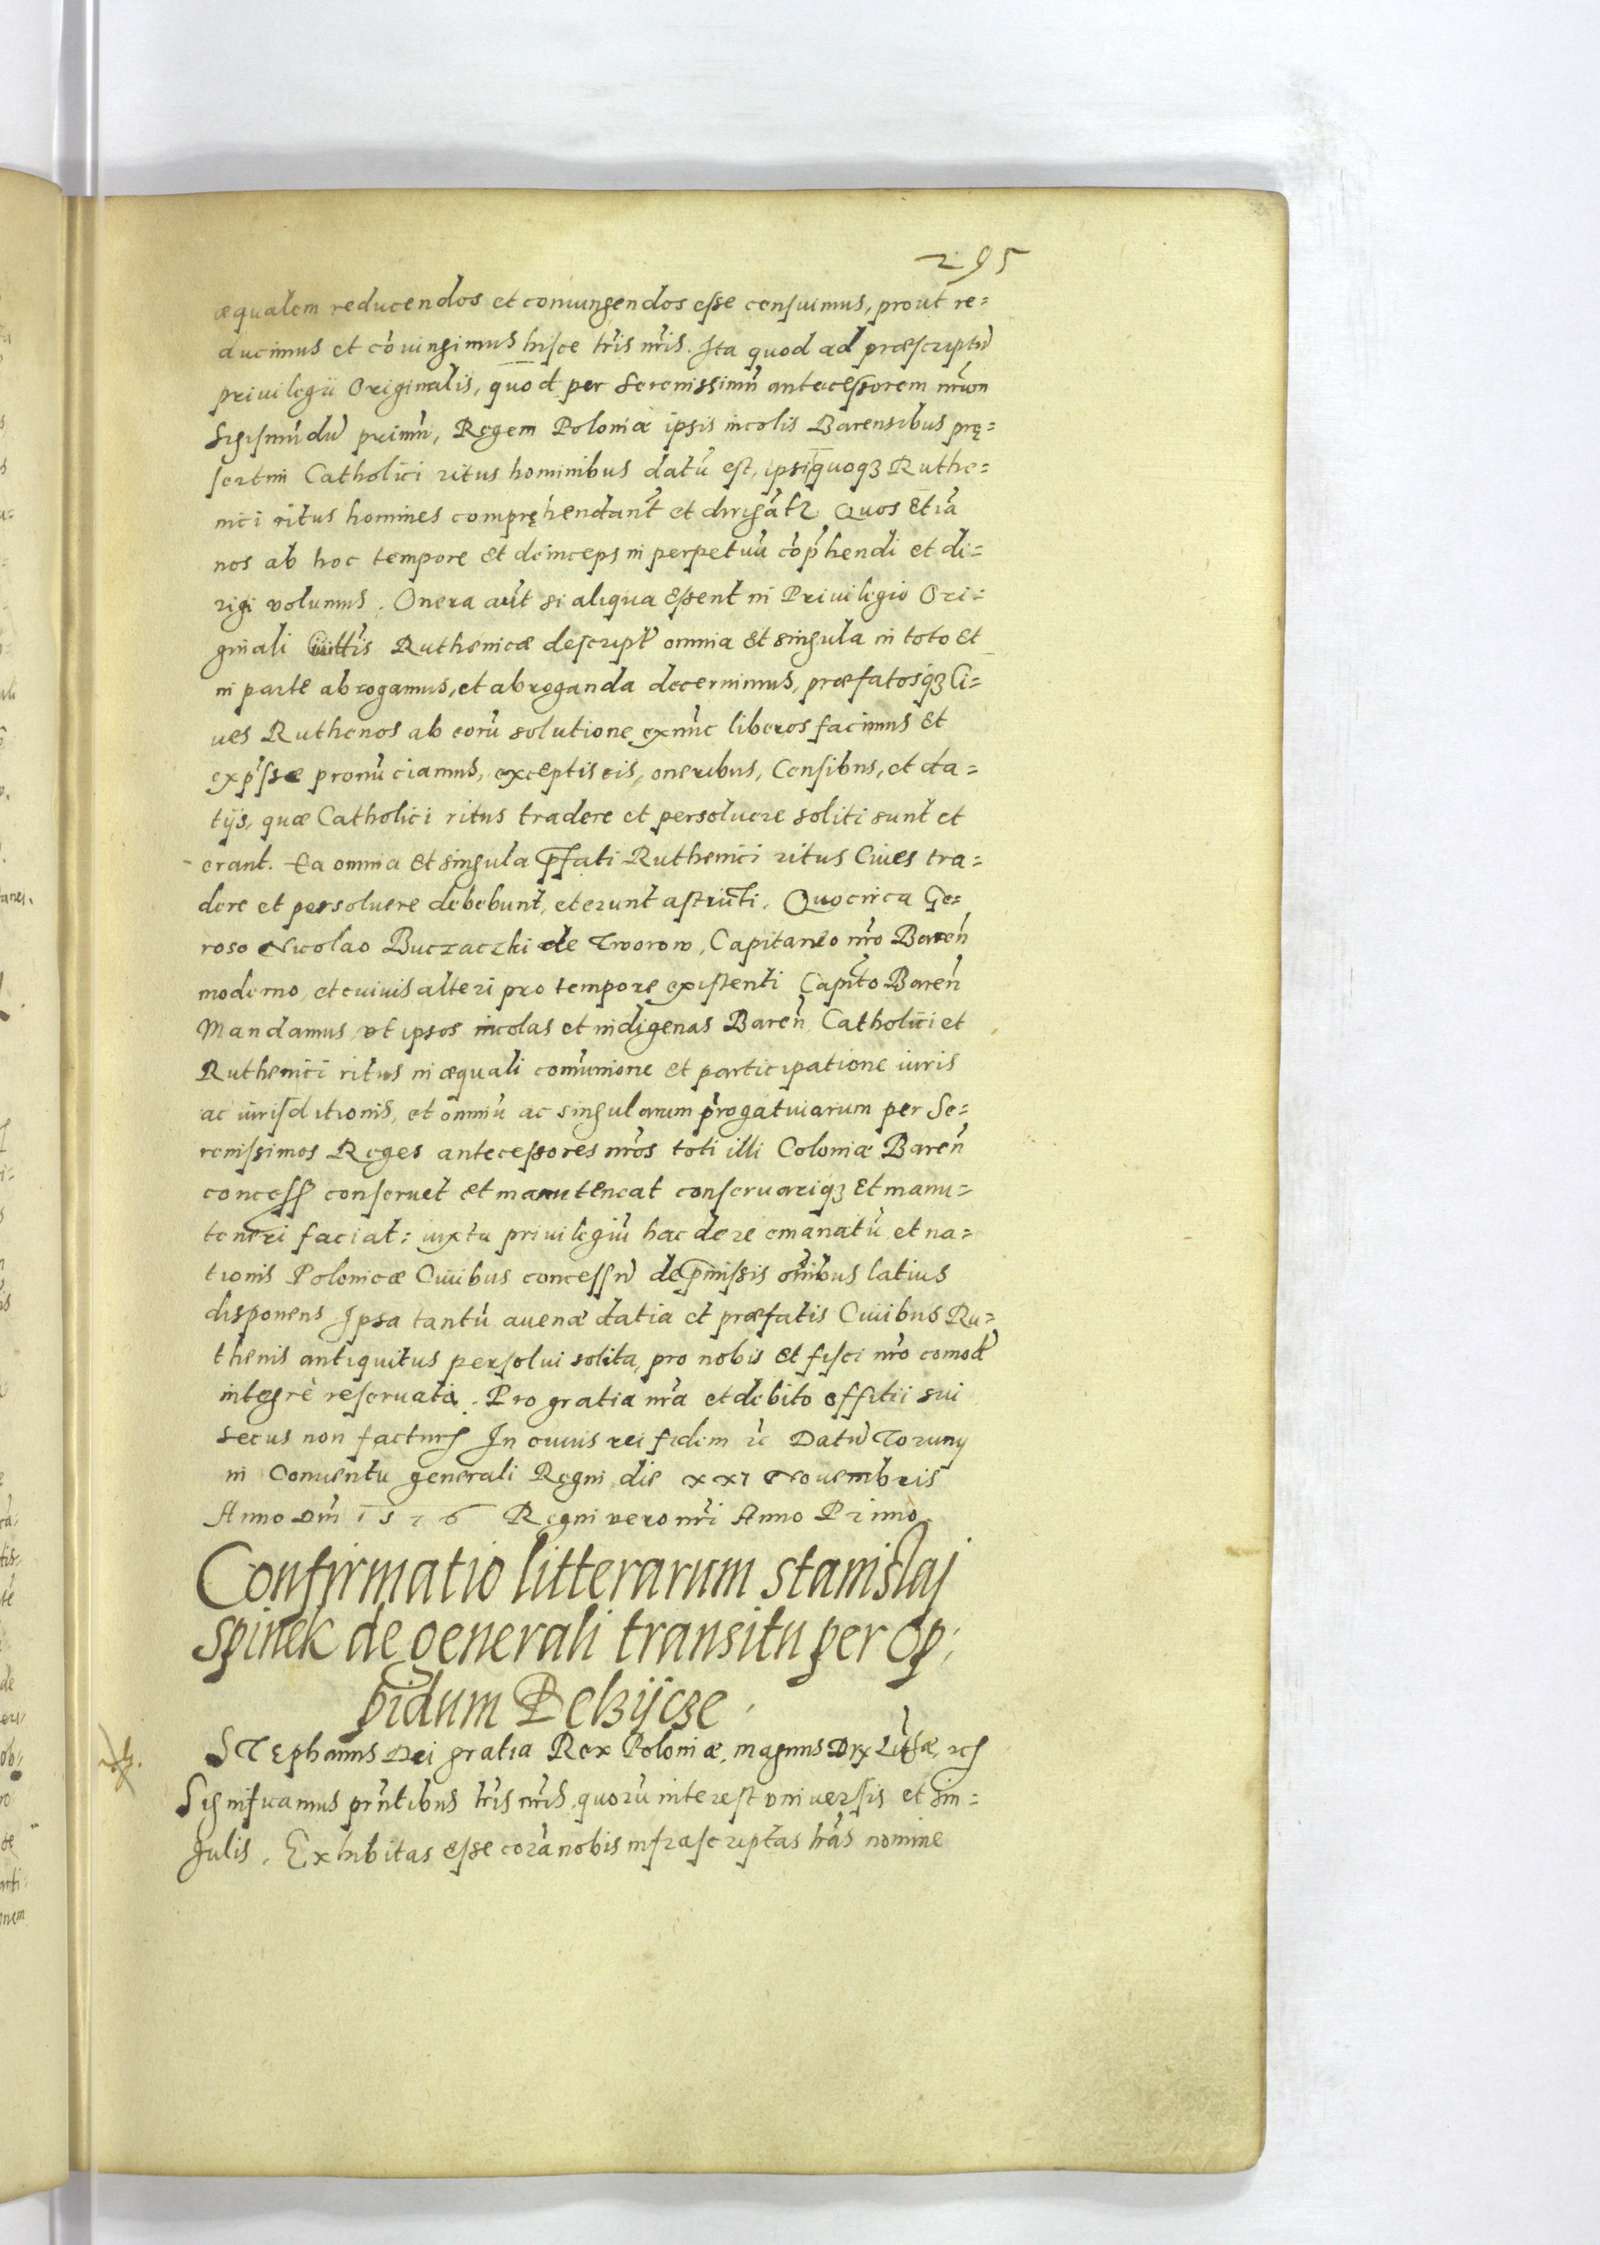 295
æqualem reducendos et coniungendos esse censuimus, prout re=
ducimus et cõiungimus hisce lr̃is nr̃is. Ita quod ad præscriptũ
privilegii Originalis, quod per Serenissimũ antecessorem nr̃um
Sigismũdũ primũ, Regem Poloniæ ipsis incolis Barensibus prę=
sertim Catholici ritus hominibus datũ est, ipsi quoqȝ Ruthe=
nici ritus homines compręhendant̃ et dirigãt̃. Quos etiã
nos ab hoc tempore et deinceps in perpetuũ cõp̃hendi et di=
rigi volumus. Onera aũt si aliqua essent in Privilegio Ori=
ginali Ciuittis Ruthenicæ descript̃ omnia et singula in toto et
in parte abrogamus, et abroganda decernimus, præfatosqȝ Ci=
ues Ruthenos ab eorũ solutione exnũc liberos facimus et
exp̃sse pronũciamus, exceptis eis, oneribus, Censibus, et da=
tijs, quæ Catholici ritus tradere et persoluere soliti sunt et
erant. Ea omnia et singula p̃fati Ruthenici ritus Ciues tra=
dere et persoluere debebunt, et erunt astricti. Quocirca Ge=
roso Nicolao Buczaczki de Tworow, Capitaneo nr̃o Bareñ
moderno, et cuiuis alteri pro tempore existenti Capñto Bareñ
Mandamus vt ipsos incolas et indigenas Bareñ Catholici et
Ruthenici ritus in æquali comũnione et participatione iuris
ac iurisditionis, et omniũ ac singularum p̃rogatiuarum per Se=
renissimos Reges antecessores nr̃os toti illi Coloniæ Bareñ
concess̃ conseruet et manuteneat conseruariqȝ et manu=
teneri faciat: iuxta priuilegiũ hac de re emanatũ et na=
tionis Polonicæ Ciuibus concessũ de p̃missis om̃ibus latius
disponens Ipsa tantũ auenæ datia et præfatis Ciuibus Ru=
thenis antiquitus persolui solita, pro nobis et fisci nr̃o comod̃
integrè reseruata. Pro gratia nr̃a et debito offitii sui
secus non factur̃ In cuius rei fidem ꝛc Datũ Toruny
in Conuentu generali Regni die xxi Nouembris
Anno Dñi 1576 Regni vero nr̃i Anno Primo.
Confirmatio litterarum Stanislaj
Spinek de generali transitu per Op:
pidum Pelzÿcze.
Stephanus Dei gratia Rex Poloniæ, magnus Dux Lit̃æ, ꝛc
Significamus prñtibus lr̃is nr̃is quorũ interest vniuersis et sin=
gulis. Exhibitas esse corã nobis infrascriptas lr̃as nomine